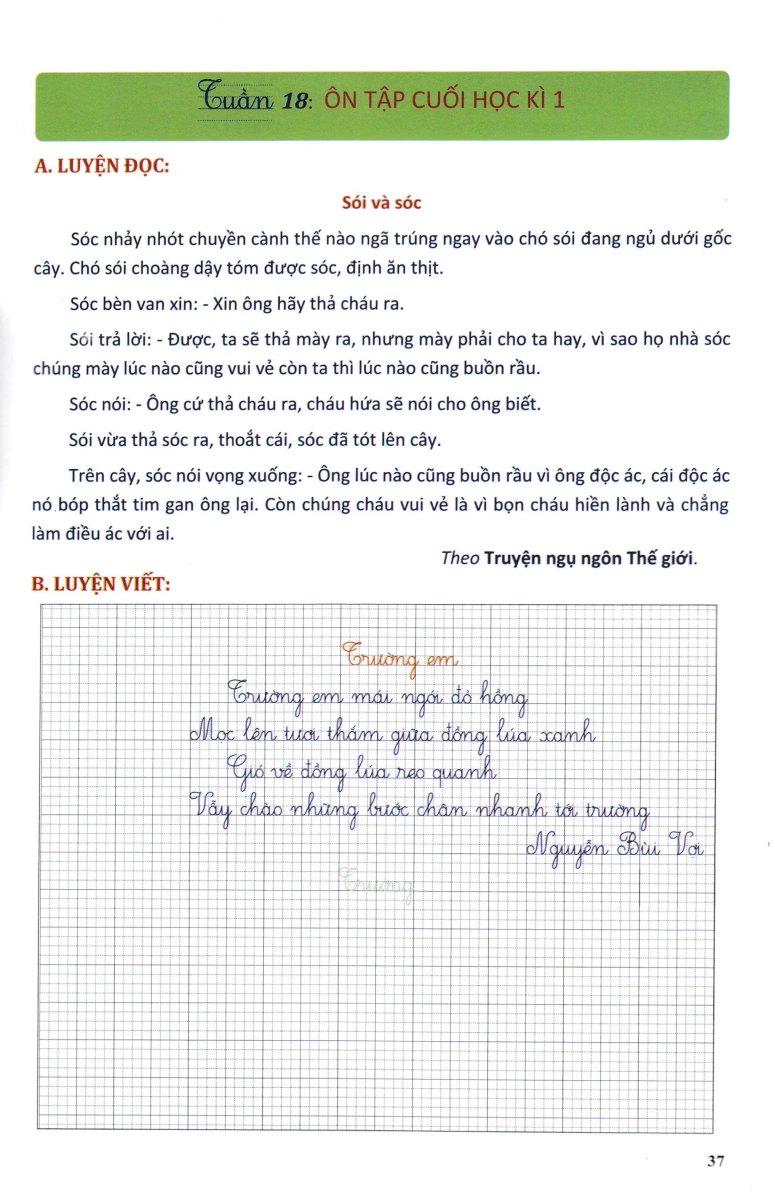 Tuần 18: ÔN TẬP CUỐI HỌC KÌ 1
A. LUYỆN ĐỌC:
Sói và sóc
Sóc nhảy nhót chuyền cành thế nào ngã trúng ngay vào chó sói đang ngủ dưới gốc
cây. Chó sói choàng dậy tóm được sóc, định ăn thịt.
Sóc bèn van xin: - Xin ông hãy thả cháu ra.
Sói trả lời: - Được, ta sẽ thả mày ra, nhưng mày phải cho ta hay, vì sao họ nhà sóc
chúng mày lúc nào cũng vui vẻ còn ta thì lúc nào cũng buồn rầu.
Sóc nói: - Ông cứ thả cháu ra, cháu hứa sẽ nói cho ông biết.
Sói vừa thả sóc ra, thoắt cái, sóc đã tót lên cây.
Trên cây, sóc nói vọng xuống: - Ông lúc nào cũng buồn rầu vì ông độc ác, cái độc ác
nó bóp thắt tim gan ông lại. Còn chúng cháu vui vẻ là vì bọn cháu hiền lành và chẳng
làm điều ác với ai.
Theo Truyện ngụ ngôn Thế giới.
B. LUYỆN VIẾT:
Trường em
Trường em mái ngói đỏ hồng
Mọc lên tươi thắm giữa đồng lúa xanh
Gió về đồng lúa reo quanh
Vẫy chào những bước chân nhanh tới trường
Nguyễn Bùi Vợi
Trương
37